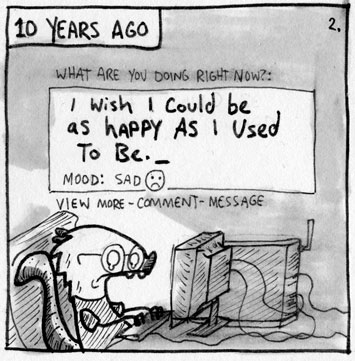 10 YEARS AGO
2.
WHAT ARE YOU DOING RIGHT NOW?:
I Wish I Could be
as hAPPY AS I Used
To Be._
MOOD: SAD
VIEW MORE - COMMENT - MESSAGE